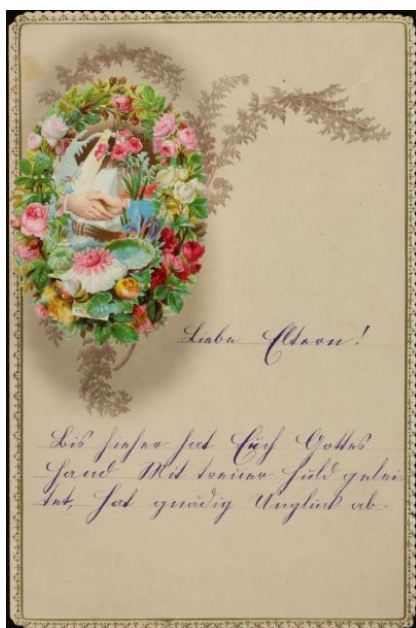 Liebe Eltern!
Bis hieher hat Euch Gottes
Hand Mit treuer Huld gelei-
tet, hat gnädig Unglück ab-